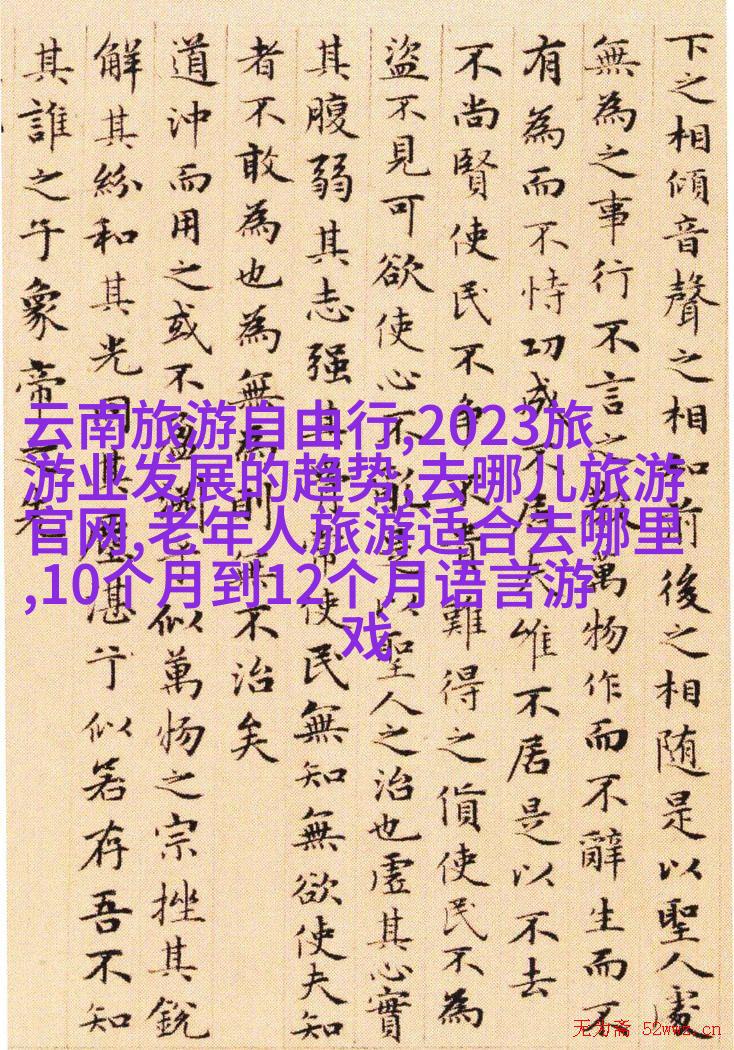 下之相傾音聲之相和前後之相随是以聖人處
無為之事行不言之教萬物作而不辭生而不
有為而不恃功成不居夫唯不居是以不去
不尚賢使民不争不貴難得之貨使民不為
盜不見可欲使心不亂是以聖人之治也虛其心實
其腹弱其志强其骨常使民無知無欲使夫知
者不敢為也為無為則無不治矣
道沖而用之或不盈淵乎似萬物之宗挫其銳
解其紛和其光同其塵湛乎似若存吾不知
其誰之子象帝之先
云南旅游自由行,2023旅
游业发展的趋势,去哪儿旅游
官网,老年人旅游适合去哪里
,10个月到12个月语言游
戏
无为斋 52wwz.cn